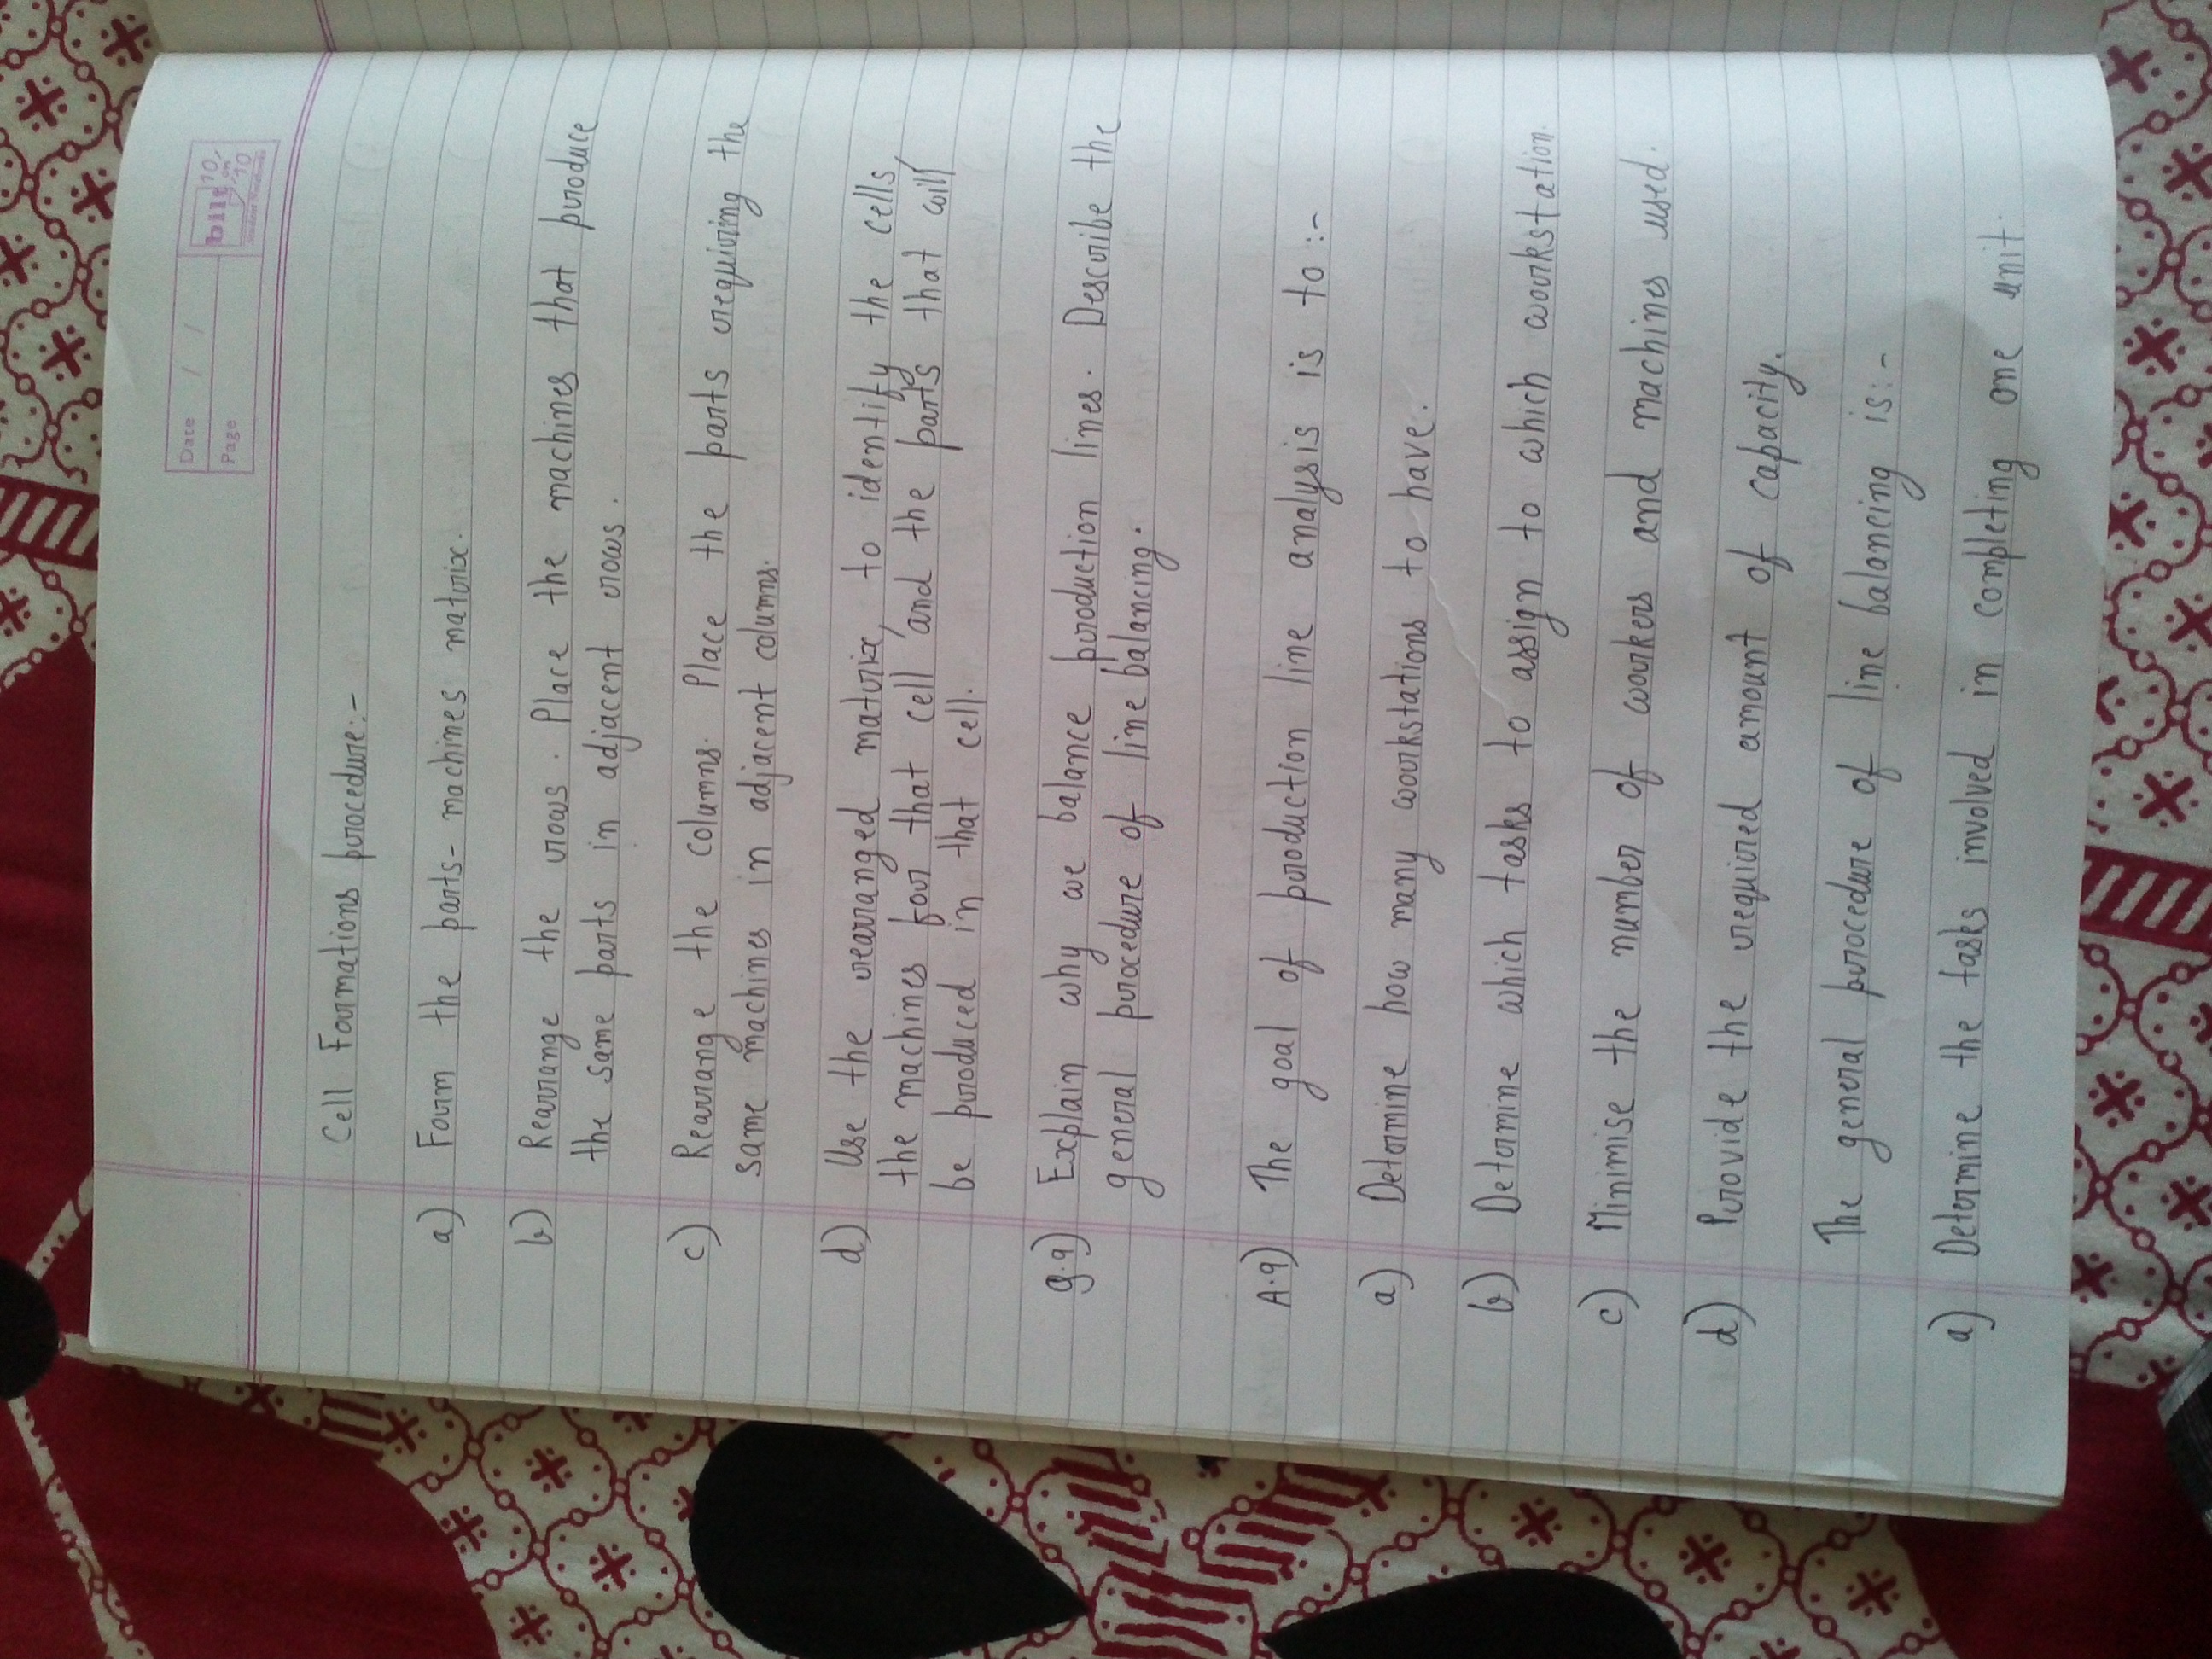 Date / /
Page
bilt 10 on 10
Cell Formations procedure:-
a) Form the parts-machines matrix.
b) Rearrange the rows. Place the machines that produce
the same parts in adjacent rows.
c) Rearrange the columns. Place the parts requiring the
same machines in adjacent columns.
d) Use the rearranged matrix, to identify the cells,
the machines for that cell, and the parts that will
be produced in that cell.
Q.9) Explain why we balance production lines. Describe the
general procedure of line balancing.
A.9) The goal of production line analysis is to:-
a) Determine how many workstations to have.
b) Determine which tasks to assign to which workstation.
c) Minimise the number of workers and machines used.
d) Provide the required amount of capacity.
The general procedure of line balancing is:-
a) Determine the tasks involved in completing one unit.